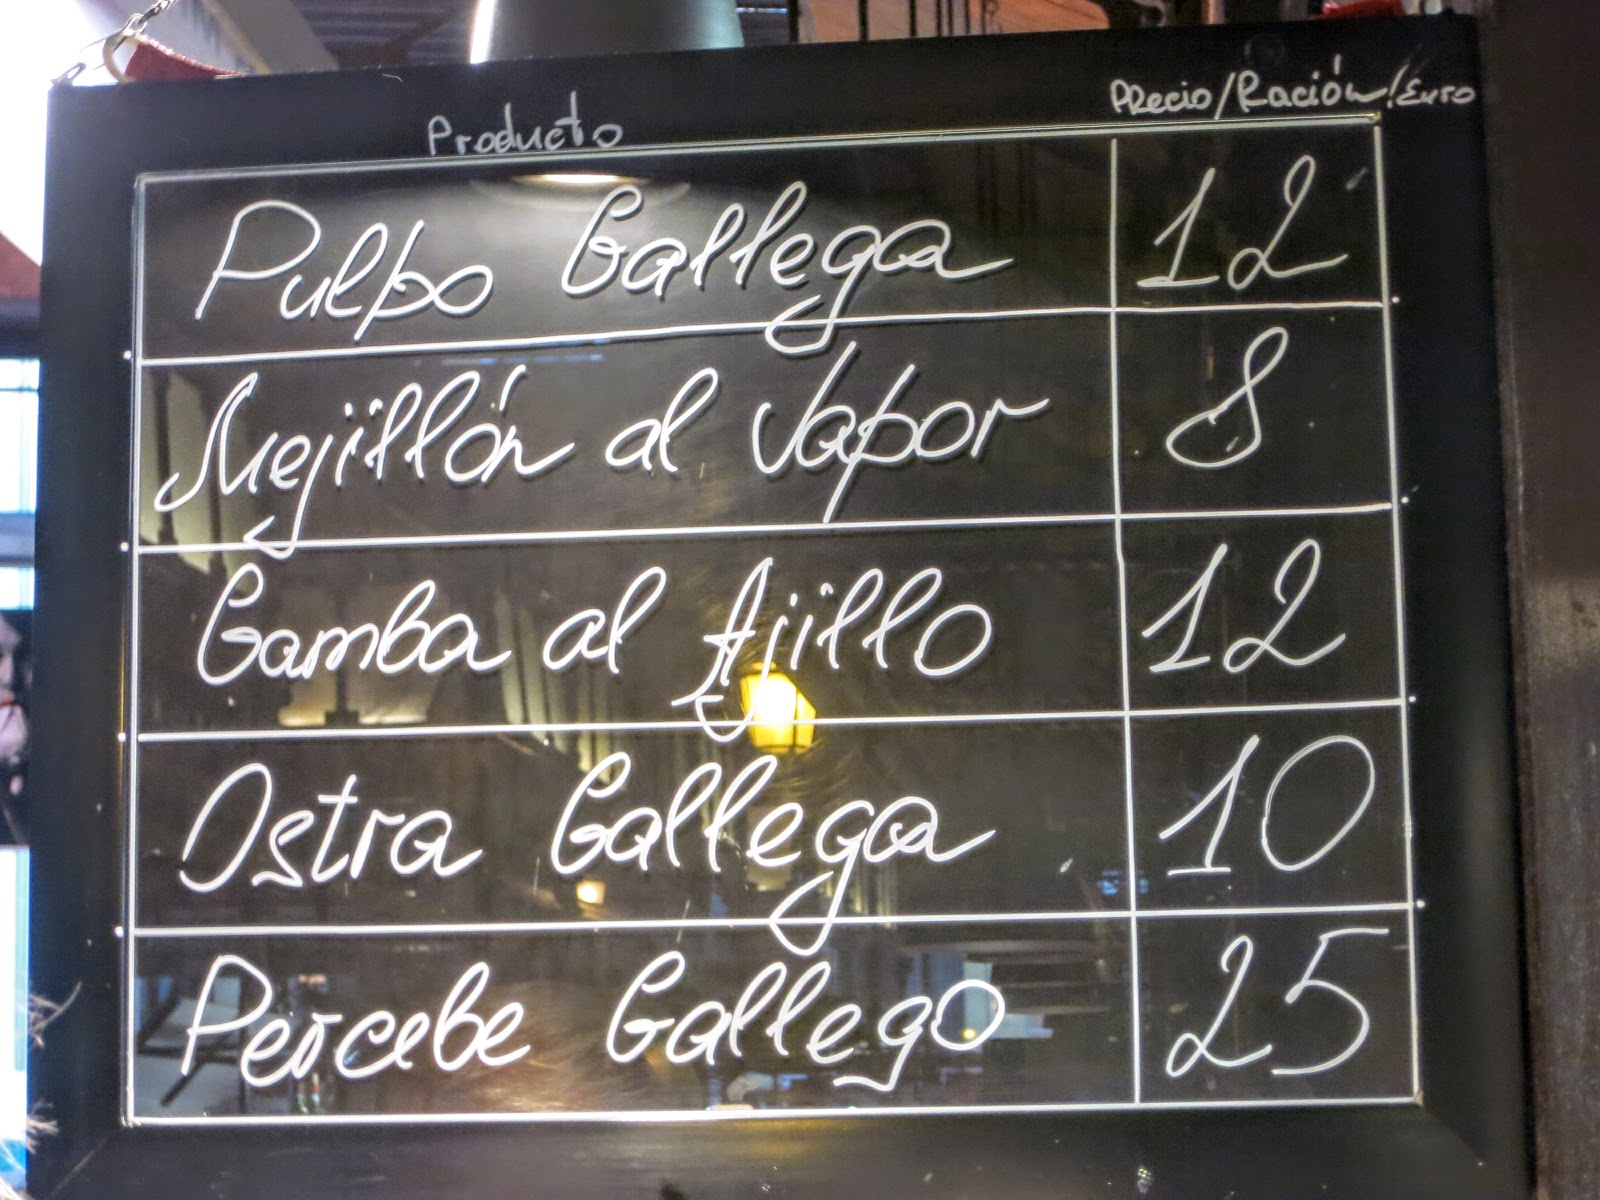 Producto Precio/Ración/Euro
Pulpo Gallega 12
Mejillón al Vapor 8
Gamba al Ajillo 12
Ostra Gallega 10
Percebe Gallego 25